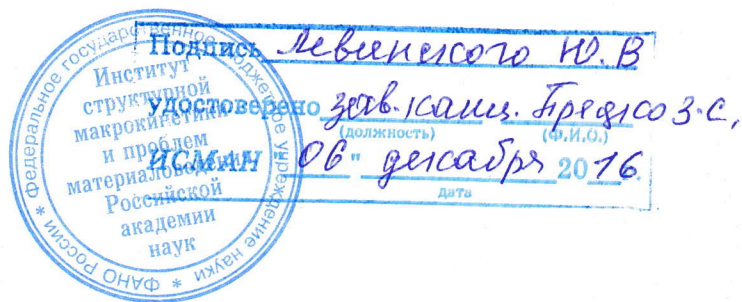 Подпись Левинского Ю.В
удостоверено зав.канц. Предко З.С,
(должность) (Ф.И.О.)
ИСМАН "06" декабря 2016.
дата
* Федеральное государственное бюджетное учреждение науки *
ФАНО России
Институт
структурной
макрокинетики
и проблем
материаловедения
Российской
академии
наук